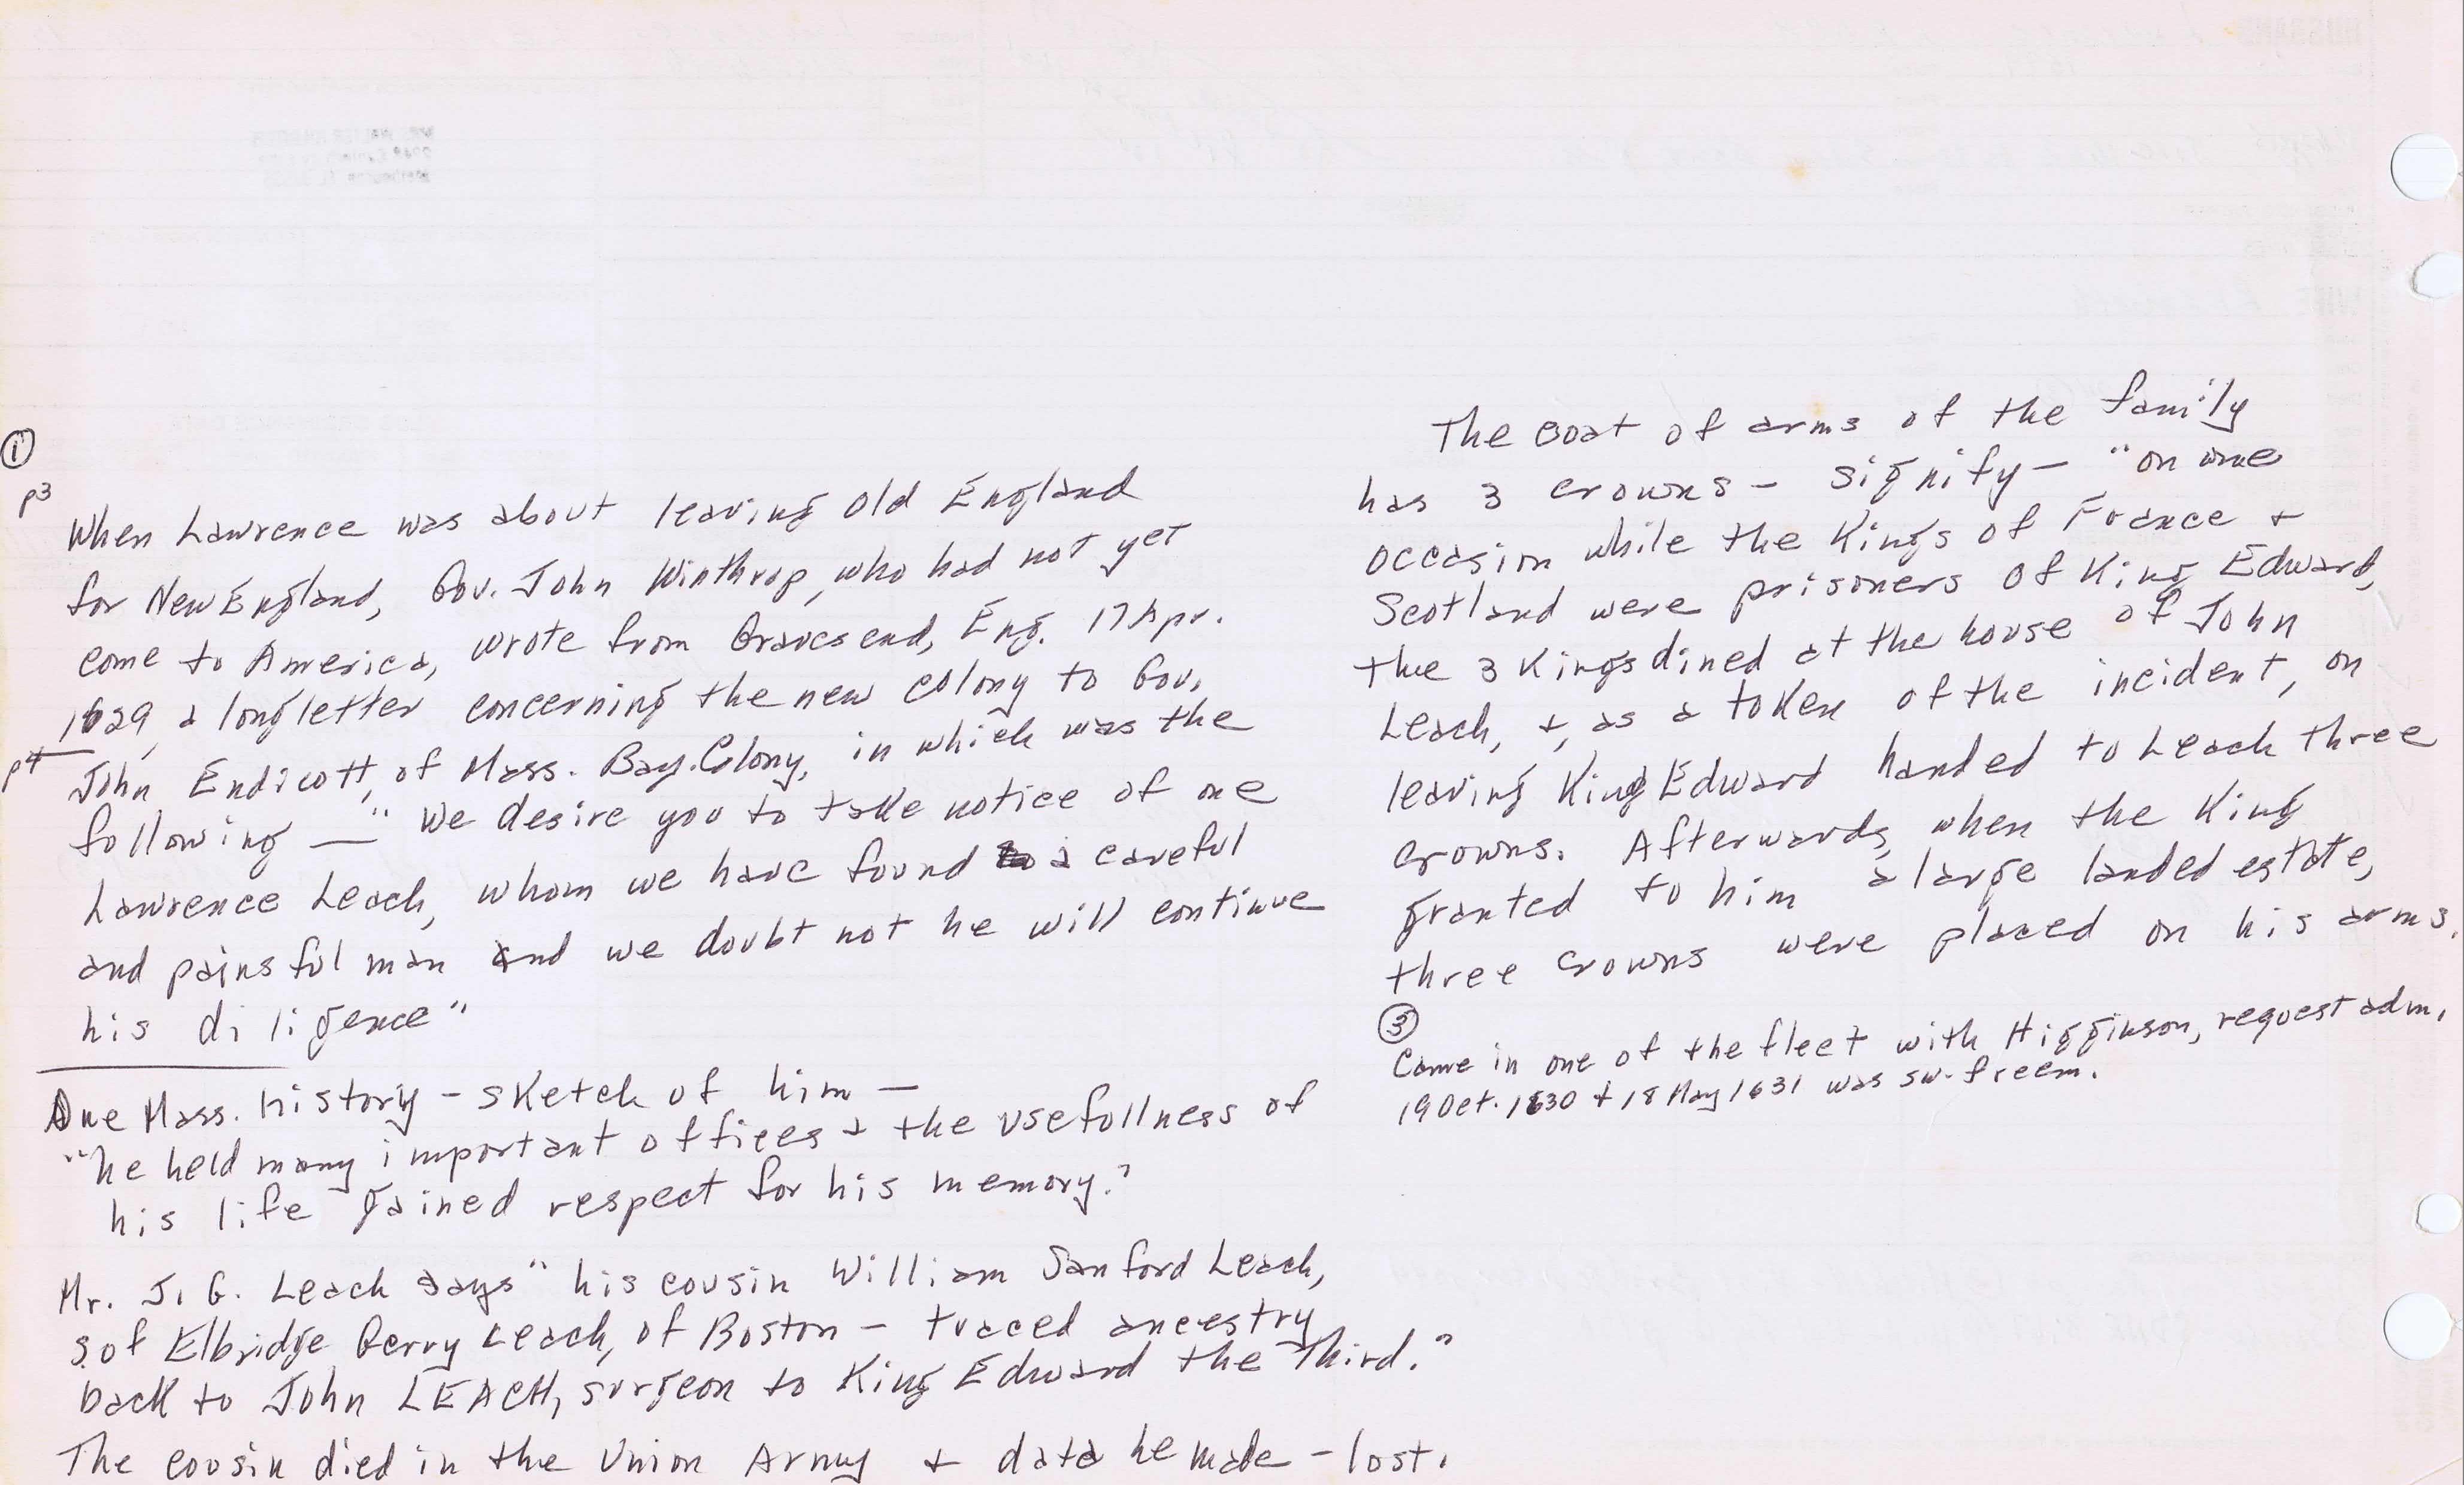 ①
p3
When Lawrence was about leaving Old England
for New England, Gov. John Winthrop, who had not yet
come to America, wrote from Gravesend, Eng. 17 Apr.
1629, a long letter concerning the new colony to Gov.
p4
John Endicott, of Mass. Bay. Colony, in which was the
following — "We desire you to take notice of one
Lawrence Leach, whom we have found a careful
and painsful man and we doubt not he will continue
his diligence"
One Mass. history - sketch of him —
"he held many important offices + the usefullness of
his life gained respect for his memory."
Mr. J. G. Leach says "his cousin William Sanford Leach,
s. of Elbridge Gerry Leach, of Boston - traced ancestry
back to John LEACH, surgeon to King Edward the Third."
The cousin died in the Union Army + data he made - lost.
The coat of arms of the family
has 3 crowns - signify - "on one
occasion while the Kings of France +
Scotland were prisoners of King Edward,
the 3 Kings dined at the house of John
Leach, +, as a token of the incident, on
leaving King Edward handed to Leach three
crowns. Afterwards, when the King
granted to him a large landed estate,
three crowns were placed on his arms.
③
Came in one of the fleet with Higginson, request adm.
19 Oct. 1630 + 18 May 1631 was sw. freem.